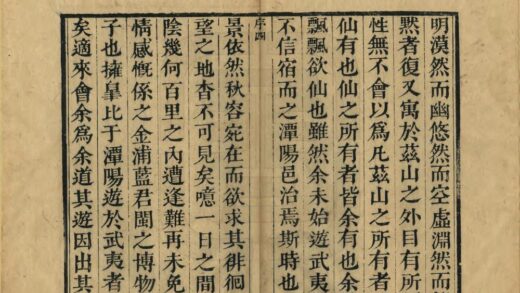 明漠然而幽悠然而空虛淵然而
黙者復又寓於茲山之外目有所
性無不會以為凡茲山之所有者
仙有也仙之所有者皆余有也余
飄飄欲仙也雖然余未始遊武夷
不信宿而之潭陽邑治焉斯時也
序四
景依然秋容宛在而欲求其徘徊
望之地杳不可見矣噫一日之間
陰幾何百里之內遭逢難再未免
情感慨係之金浦藍君閩之博物
子也擁臯比于潭陽遊於武夷者
矣適來會余為余道其遊因出其